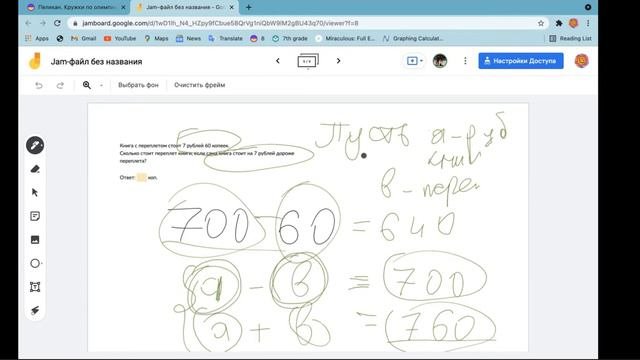 Пеликан. Кружки по олимпи
Jam-файл без названия - Goo
jamboard.google.com/d/1wD1lh_N4_HZpy9fCbue58QrVg1niQbW9IM2gBU43q70/viewer?f=8
Paused
Translate
8
7th grade
Miraculous: Full E...
Graphing Calculat...
Reading List
Jam-файл без названия
Настройки Доступа
Выбрать фон
Очистить фрейм
Книга с переплетом стоит 7 рублей 60 копеек.
Сколько стоит переплет книги, если сама книга стоит на 7 рублей дороже
переплета?
Ответ: коп.
Пусть я-руб
книг
в - пере
700 - 60 = 640
а - в = 700
а + в = 760